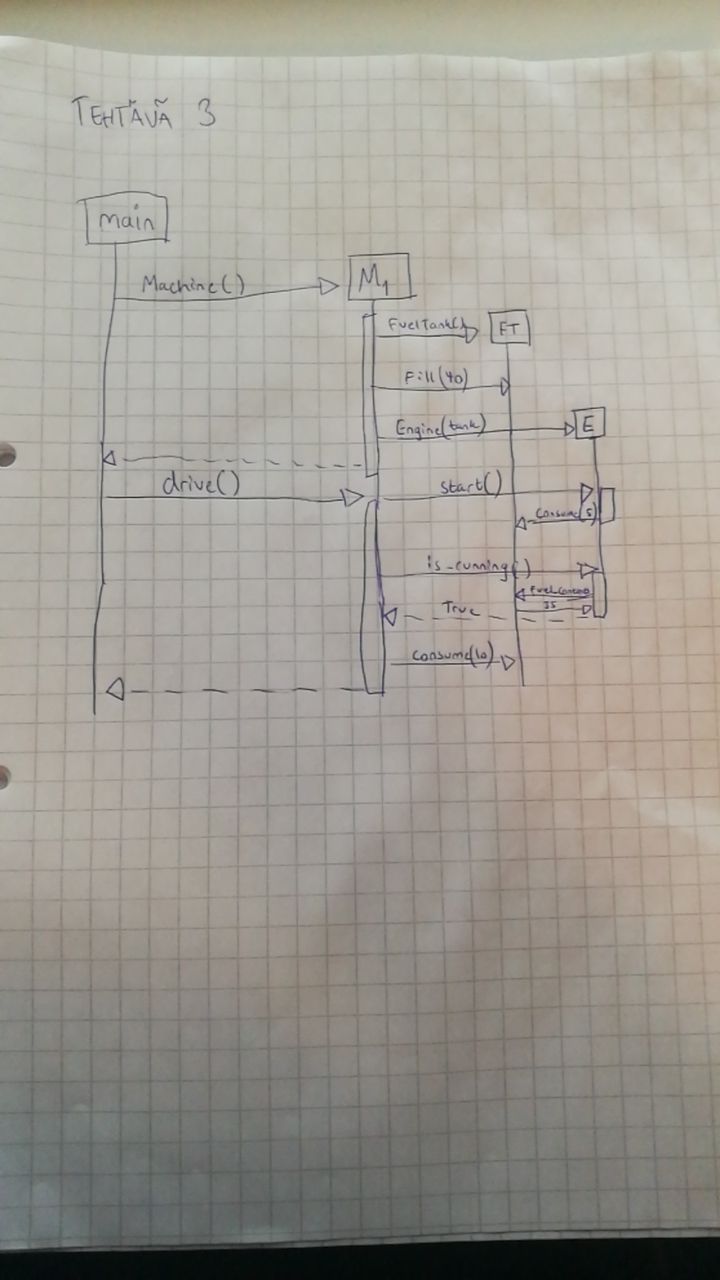 TEHTÄVÄ 3
main
Machine()
M1
FuelTank()
FT
Fill(40)
Engine(tank)
E
drive()
start()
Consume(5)
is_running()
True
35
consume(10)